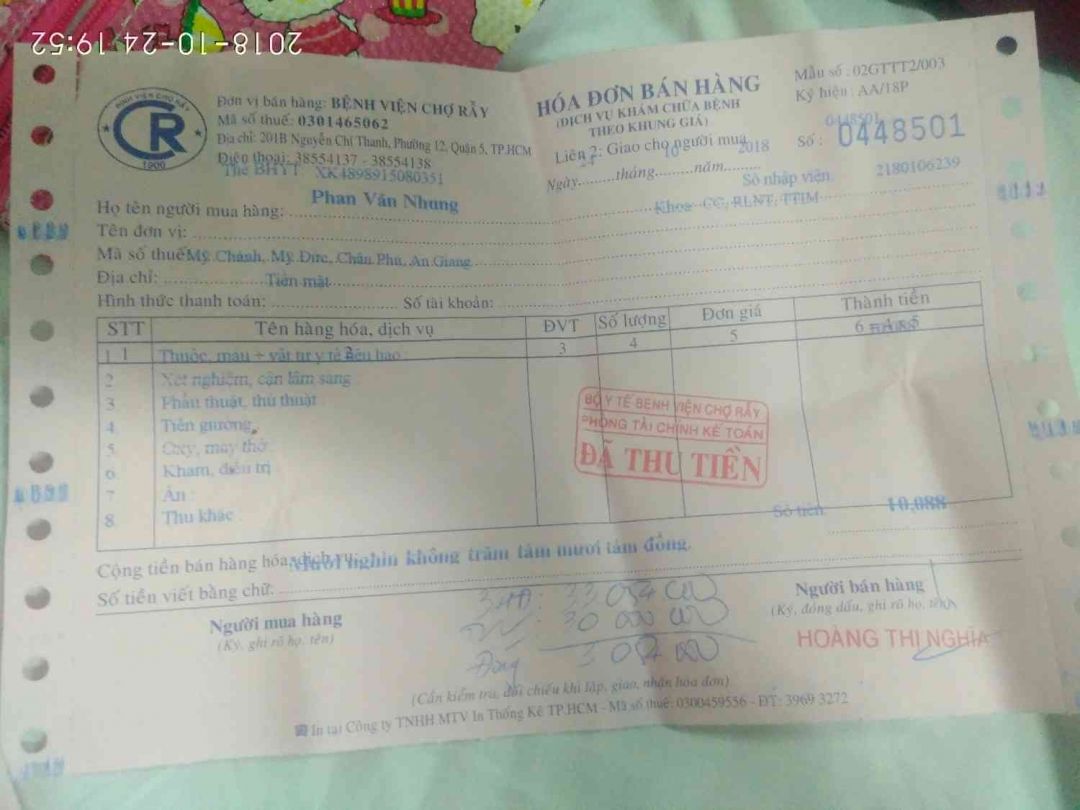 2018-10-24 19:52
BỆNH VIỆN CHỢ RẪY
CR
1900
Đơn vị bán hàng: BỆNH VIỆN CHỢ RẪY
Mã số thuế: 0301465062
Địa chỉ: 201B Nguyễn Chí Thanh, Phường 12, Quận 5, TP.HCM
Điện thoại: 38554137 - 38554138
Thẻ BHYT XK4898915080351
HÓA ĐƠN BÁN HÀNG
(DỊCH VỤ KHÁM CHỮA BỆNH
THEO KHUNG GIÁ)
Liên 2: Giao cho người mua
Ngày 24 tháng 10 năm 2018
Mẫu số : 02GTTT2/003
Ký hiệu : AA/18P
0448501
Số : 0448501
Số nhập viện 2180106239
Họ tên người mua hàng: Phan Văn Nhung
Khoa CC, RLNT, TTIM
Tên đơn vị:
Mã số thuế Mỹ Chánh, Mỹ Đức, Châu Phú, An Giang
Địa chỉ: Tiền mặt
Hình thức thanh toán: Số tài khoản:
STT Tên hàng hóa, dịch vụ ĐVT Số lượng Đơn giá Thành tiền
1 2 3 4 5 6
1 Thuốc, máu + vật tư y tế tiêu hao
2 Xét nghiệm, cận lâm sàng
3 Phẫu thuật, thủ thuật
4 Tiền giường
5 Oxy, máy thở
6 Khám, điều trị
7 Ăn
8 Thu khác
BỘ Y TẾ BỆNH VIỆN CHỢ RẪY
PHÒNG TÀI CHÍNH KẾ TOÁN
ĐÃ THU TIỀN
Số tiền 10,088
Cộng tiền bán hàng hóa, dịch vụ:
Mười nghìn không trăm tám mươi tám đồng.
Số tiền viết bằng chữ:
Người mua hàng
(Ký, ghi rõ họ, tên)
Người bán hàng
(Ký, đóng dấu, ghi rõ họ, tên)
HOÀNG THỊ NGHĨA
(Cần kiểm tra, đối chiếu khi lập, giao, nhận hóa đơn)
In tại Công ty TNHH MTV In Thống Kê TP.HCM - Mã số thuế: 0300459556 - ĐT: 3969 3272